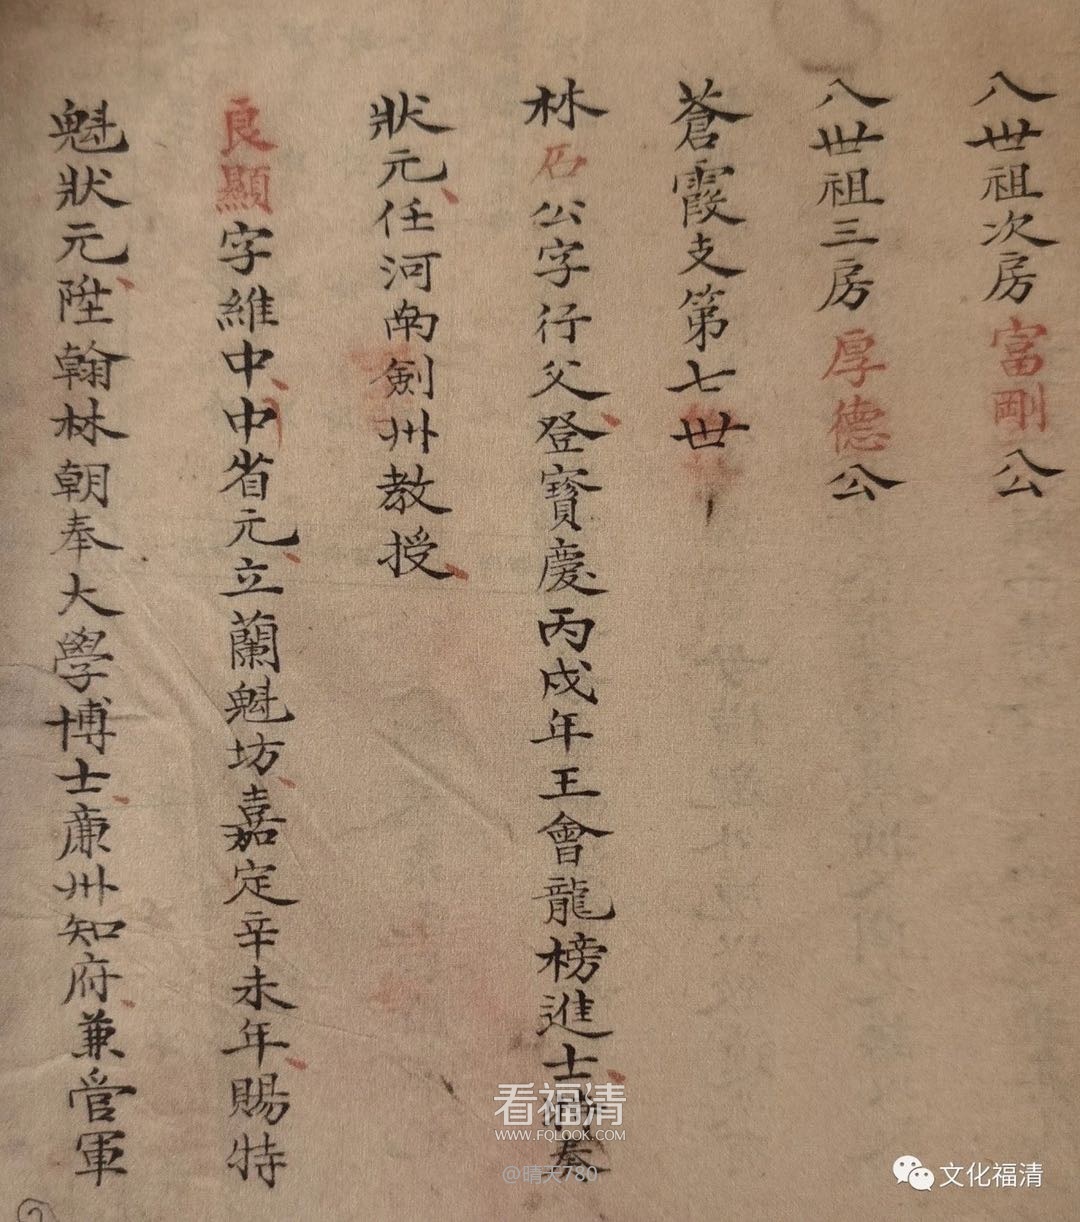 八世祖次房富剛公
八世祖三房厚德公
蒼霞支第七世
林石公字行父登寶慶丙戌年王會龍榜進士 奏
狀元任河南劍州教授
良顯字維中中省元立蘭魁坊嘉定辛未年賜特
魁狀元陞翰林朝奉大學博士廉州知府兼管軍
看福清
WWW.FQLOOK.COM
@晴天780
文化福清